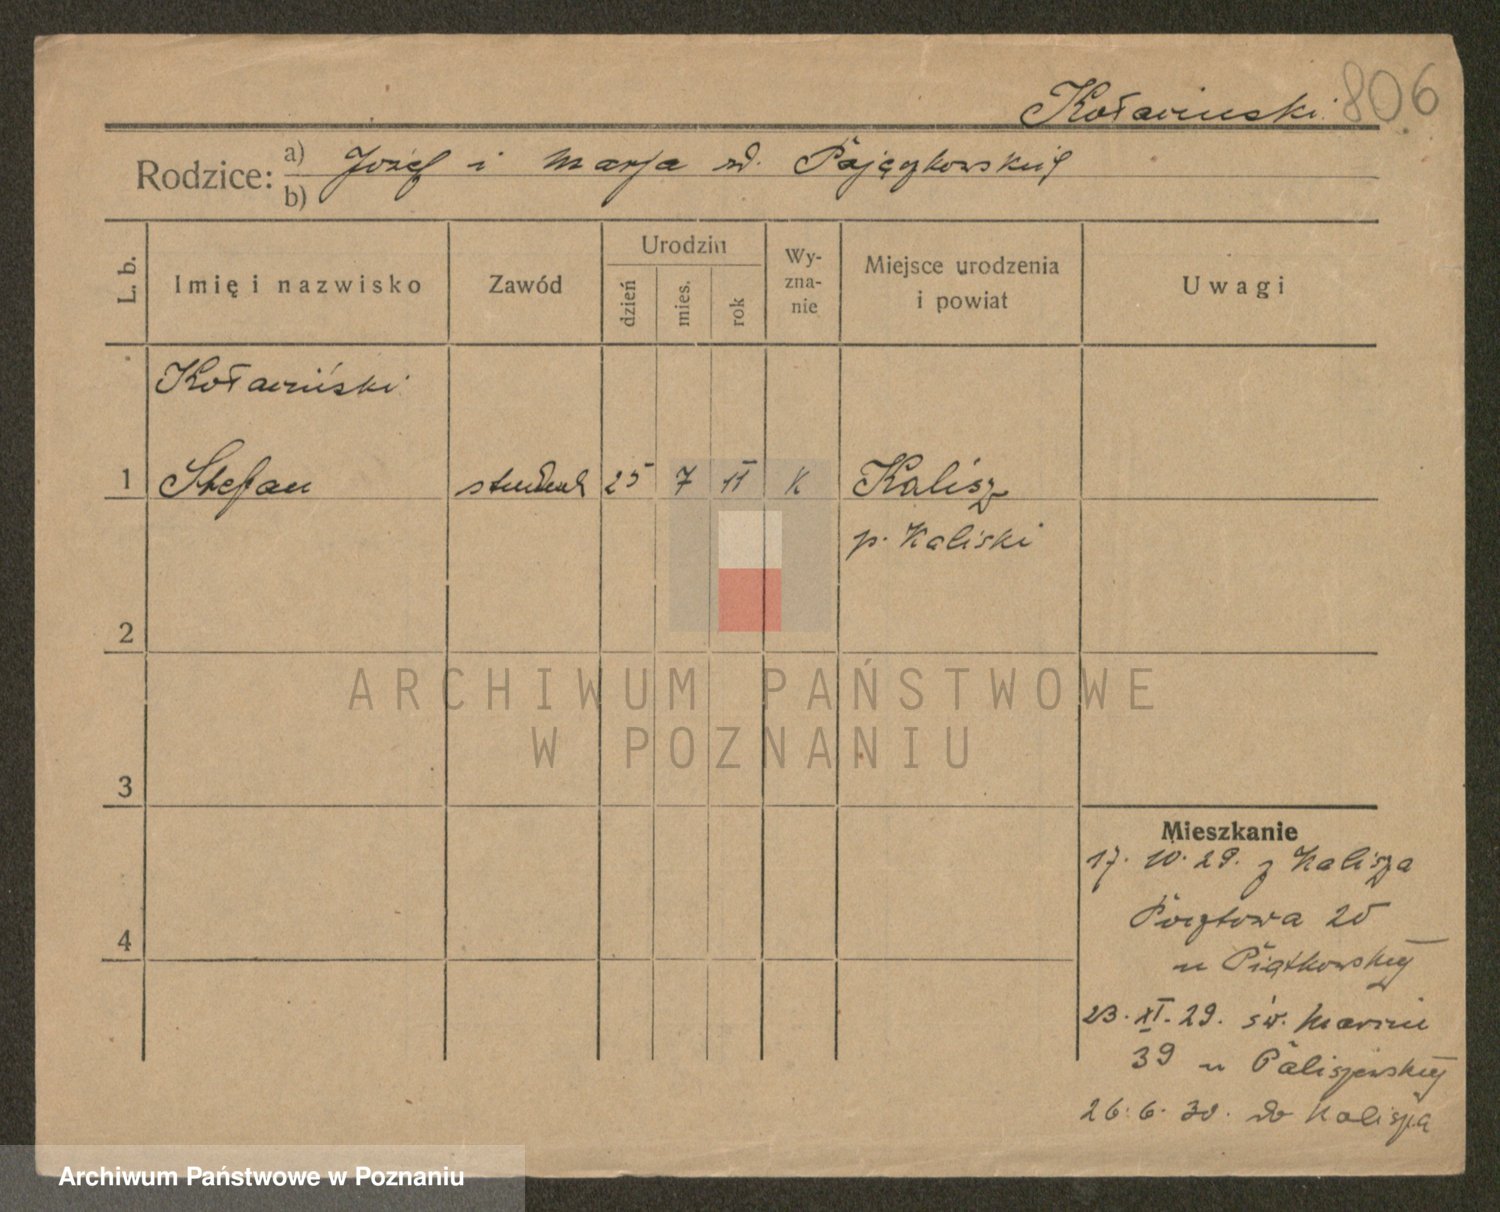 Kołaciński 806
Rodzice: a) Józef i Marja zd. Pajączkowskiej
b)
L. b. Imię i nazwisko Zawód Urodzin dzień mies. rok Wy-zna-nie Miejsce urodzenia i powiat Uwagi
Kołaciński
1 Stefan student 25 7 11 K Kalisz
p. Kaliski
2
3
4
Mieszkanie
17. 10. 29. z Kalisza
Pocztowa 25
u Piątkowskiej
23. XI. 29. św. Marcin
39 u Paliszewskiej
26. 6. 30. do Kalisza
ARCHIWUM PAŃSTWOWE
W POZNANIU
Archiwum Państwowe w Poznaniu